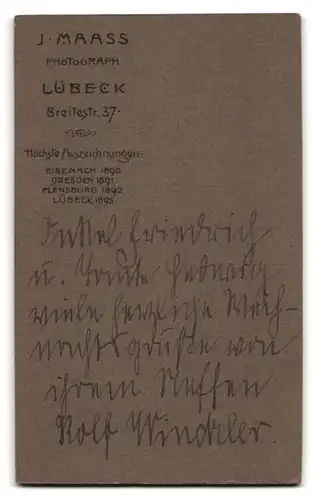 J. MAASS
PHOTOGRAPH
LÜBECK
Breitestr. 37.
Höchste Auszeichnungen:
EISENACH 1890
DRESDEN 1891
FLENSBURG 1892
LÜBECK 1895
Onkel Friedrich
u. Tante Hedwig
viele herzliche Weih-
nachtsgrüße von
ihrem Neffen
Rolf Windaler.